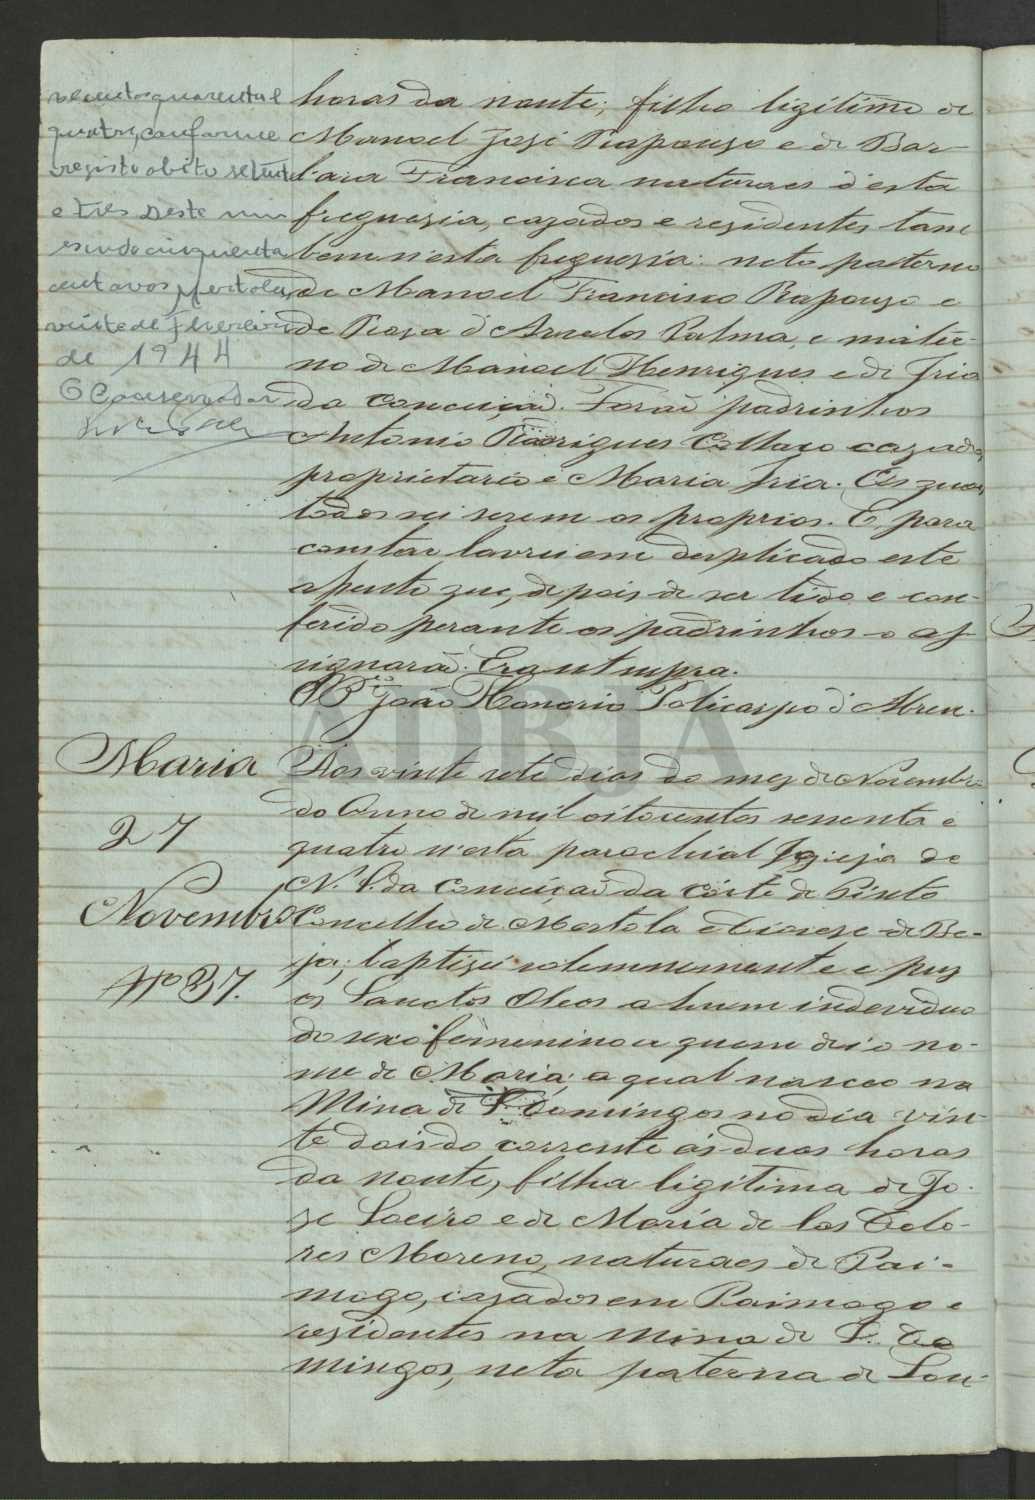 novecentos quarenta e
quatro, conforme
registo obito setenta
e tres deste 
escudo cincoenta
centavos Mertola,
vinte de Fevereiro
de 1944
O Conservador
horas da noute; filho ligitimo de
Manoel José Rapouzo e de Bar-
bara Francisca naturaes d'esta
freguezia, cazados e rezidentes tam
bem n'esta freguezia: neto paterno
de Manoel Francisco Rapouzo e
de Roza d'Arcelos Palma, e mater-
no de Manoel Henriques e de Iria
da Conceiçaõ. Foraõ padrinhos
Antonio Rodrigues Collaço cazado,
proprietario e Maria Iria. Os quaes
todos sei serem os proprios. E para
constar lavrei em duplicado este
assento que, depois de ser lido e con-
ferido perante os padrinhos o as-
signaraõ. Era ut supra.
O P.e João Honorio Policarpo d'Abreu.
Maria
27
Novembro
Nº 37.
Aos vinte sete dias do mez de Novembro
do Anno de mil oitocentos sessenta e
quatro n'esta parochial Igreja de
N. S. da Conceiçaõ da Côrte do Pinto
Concelho de Mertola e Diocese de Be-
ja; baptizei solemnemente e puz
os Sanctos Oleos a hum individuo
do sexo femenino a quem dei o no-
me de Maria; a qual nasceo na
Mina de S. Domingos no dia vin-
te dois do corrente ás duas horas
da noute, filha ligitima de Jo-
ze Loeiro e de María de los Dolo-
res Moreno, naturaes de Pai-
mogo, cazados em Paimogo e
rezidentes na Mina de S. Do
mingos, neta paterna de Lou-
ADBJA